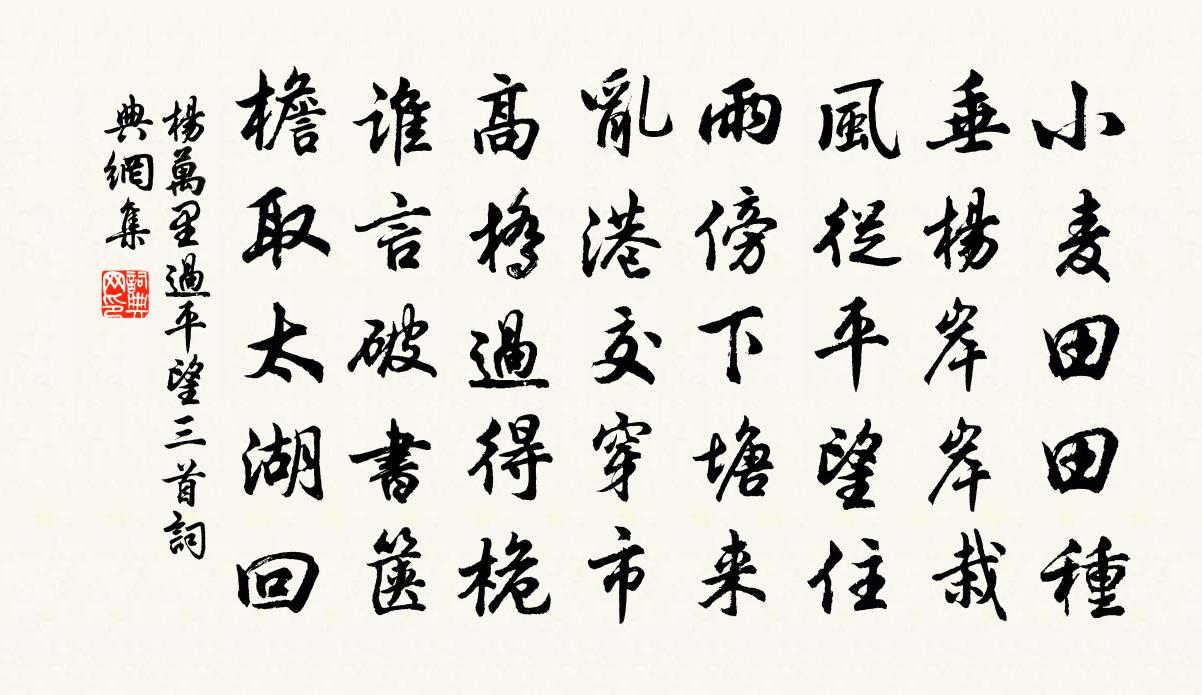 小麦田田種
垂楊岸岸栽
風從平望住
雨傍下塘来
亂港交穿市
高橋過得桅
誰言破書篋
檐取太湖回
楊萬里過平望三首詞
典網集
詞典
网印